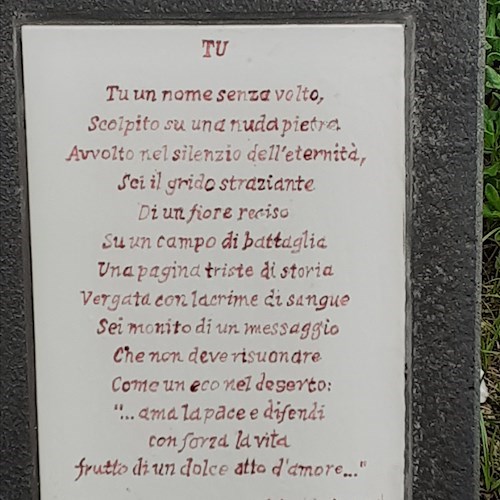 TU
Tu un nome senza volto,
Scolpito su una nuda pietra
Avvolto nel silenzio dell'eternità,
Sei il grido straziante
Di un fiore reciso
Su un campo di battaglia
Una pagina triste di storia
Vergata con lacrime di sangue
Sei monito di un messaggio
Che non deve risuonare
Come un eco nel deserto:
"... ama la pace e difendi
con forza la vita
frutto di un dolce atto d'amore..."